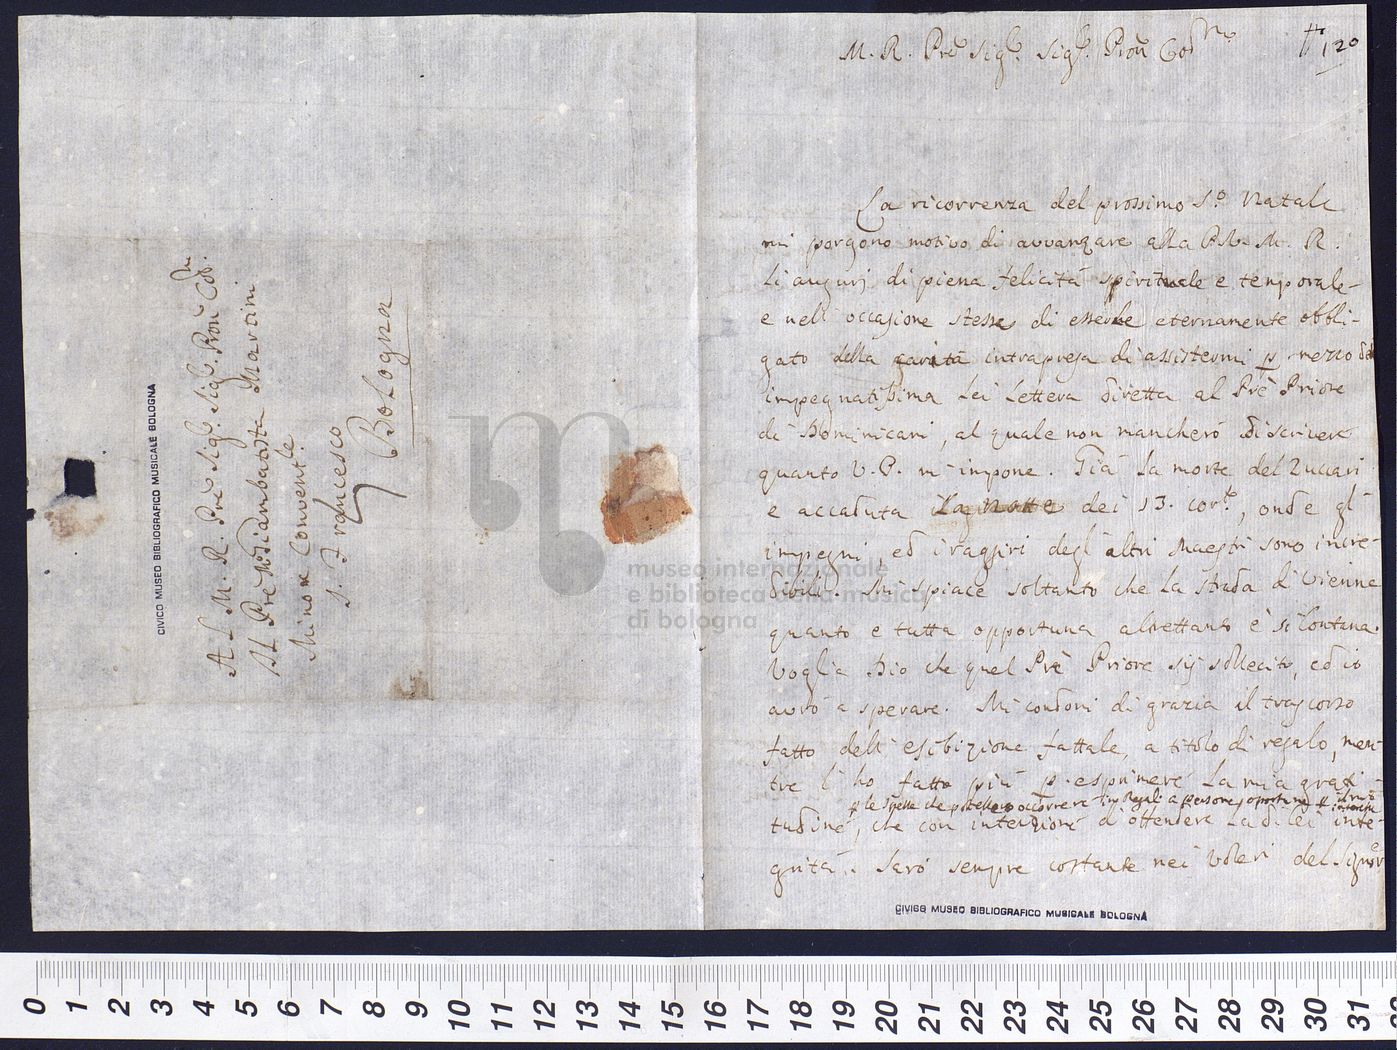 Al M. R. Pre Sigr. Sigr. Pron Col.mo
Il Pre Giambatta Martini
Minor Convent.le
S. Francesco
Bologna
CIVICO MUSEO BIBLIOGRAFICO MUSICALE BOLOGNA
museo internazionale
e biblioteca della musica
di bologna
M. R. Pre Sigr. Sigr. Pron Col.mo
120
La ricorrenza del prossimo S.o Natale
mi porgono motivo di avvanzare alla P. M. R.
li augurj di piena felicità spirituale e temporale
e nell'occasione stessa di esserle eternamente obbli-
gato della carità intrapresa di assistermi p mezzo di
impegnatissima Lei Lettera diretta al Pre Priore
di Dominicani, al quale non mancherò di scrivere
quanto V. P. m'impone. Già la morte del Zuccari
è accaduta la notte dei 13. cor.te, onde gl'
impegni, ed i raggiri degl'altri Maestri sono incre-
dibili. Mi spiace soltanto che la strada di Vienna
quanto è tutta opportuna altrettanto è sì lontana.
Voglia Dio che quel Pre Priore sij sollecito, ed io
avrò a sperare. Mi condoni di grazia il trascorso
fatto dell'esibizione fattale, a titolo di regalo, men-
tre l'ho fatto più p esprimere la mia grati-
p le spese che potessero occorrere in Regali a persone opportune p
tudine, che con intenzione di offendere la di lei inte-
grità. Sarò sempre costante nei voleri del Signore
CIVICO MUSEO BIBLIOGRAFICO MUSICALE BOLOGNA
0 1 2 3 4 5 6 7 8 9 10 11 12 13 14 15 16 17 18 19 20 21 22 23 24 25 26 27 28 29 30 31